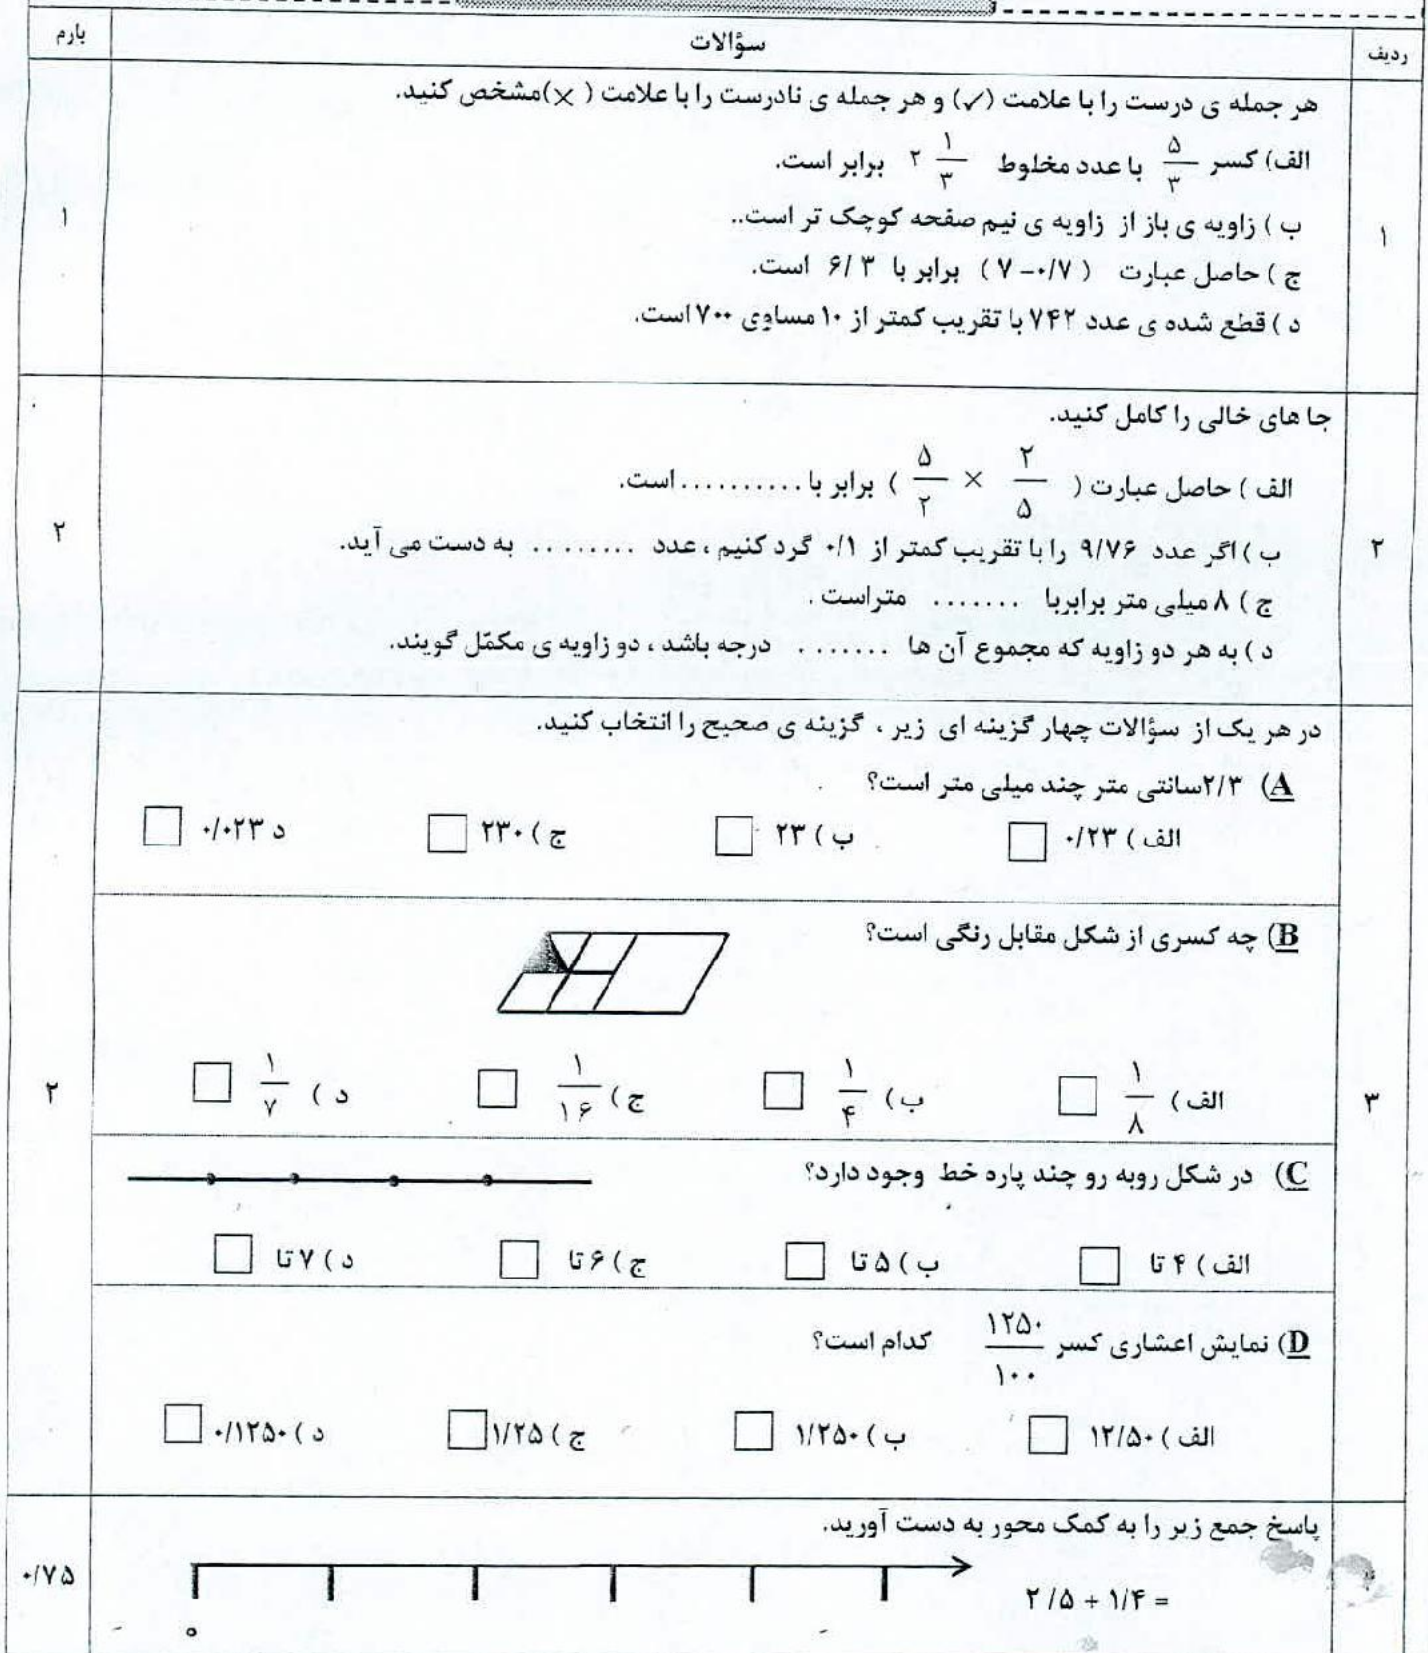 ردیف سؤالات بارم
هر جمله ی درست را با علامت (✓) و هر جمله ی نادرست را با علامت ( × )مشخص کنید.
الف) کسر ۵/۳ با عدد مخلوط ۲ ۱/۳ برابر است.
ب ) زاویه ی باز از زاویه ی نیم صفحه کوچک تر است..
۱ ۱
ج ) حاصل عبارت ( ۷ – ۰/۷ ) برابر با ۶/۳ است.
د ) قطع شده ی عدد ۷۴۲ با تقریب کمتر از ۱۰ مساوی ۷۰۰ است.
جا های خالی را کامل کنید.
الف ) حاصل عبارت ( ۲/۵ × ۵/۲ ) برابر با .......... است.
۲ ۲
ب ) اگر عدد ۹/۷۶ را با تقریب کمتر از ۰/۱ گرد کنیم ، عدد ........ به دست می آید.
ج ) ۸ میلی متر برابربا ....... متراست .
د ) به هر دو زاویه که مجموع آن ها ....... درجه باشد ، دو زاویه ی مکمّل گویند.
در هر یک از سؤالات چهار گزینه ای زیر ، گزینه ی صحیح را انتخاب کنید.
A) ۲/۳سانتی متر چند میلی متر است؟
الف ) ۰/۲۳ ب ) ۲۳ ج ) ۲۳۰ د ۰/۰۲۳
B) چه کسری از شکل مقابل رنگی است؟
۳ الف ) ۱/۸ ب ) ۱/۴ ج ) ۱/۱۶ د ) ۱/۷ ۲
C) در شکل روبه رو چند پاره خط وجود دارد؟
الف ) ۴ تا ب ) ۵ تا ج ) ۶ تا د ) ۷ تا
D) نمایش اعشاری کسر ۱۲۵۰/۱۰۰ کدام است؟
الف ) ۱۲/۵۰ ب ) ۱/۲۵۰ ج ) ۱/۲۵ د ) ۰/۱۲۵۰
پاسخ جمع زیر را به کمک محور به دست آورید.
۲/۵ + ۱/۴ = ۰/۷۵
۰